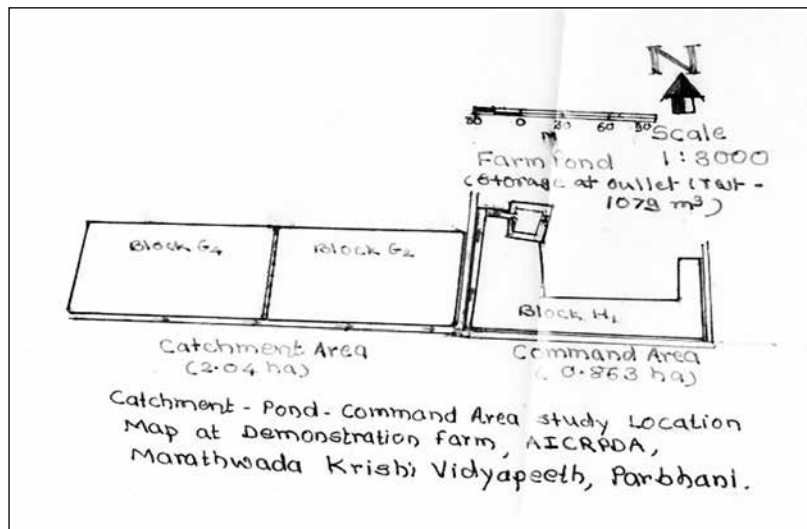 N
30 0 30 60 90
M
Scale
1:3000
Farm Pond
(Storage at outlet
1079 m³)
Block G4
Block G2
Block H1
Catchment Area
(2.04 ha)
Command Area
(0.863 ha)
Catchment - Pond - Command Area study Location
Map at Demonstration farm, AICRPDA,
Marathwada Krishi Vidyapeeth, Parbhani.